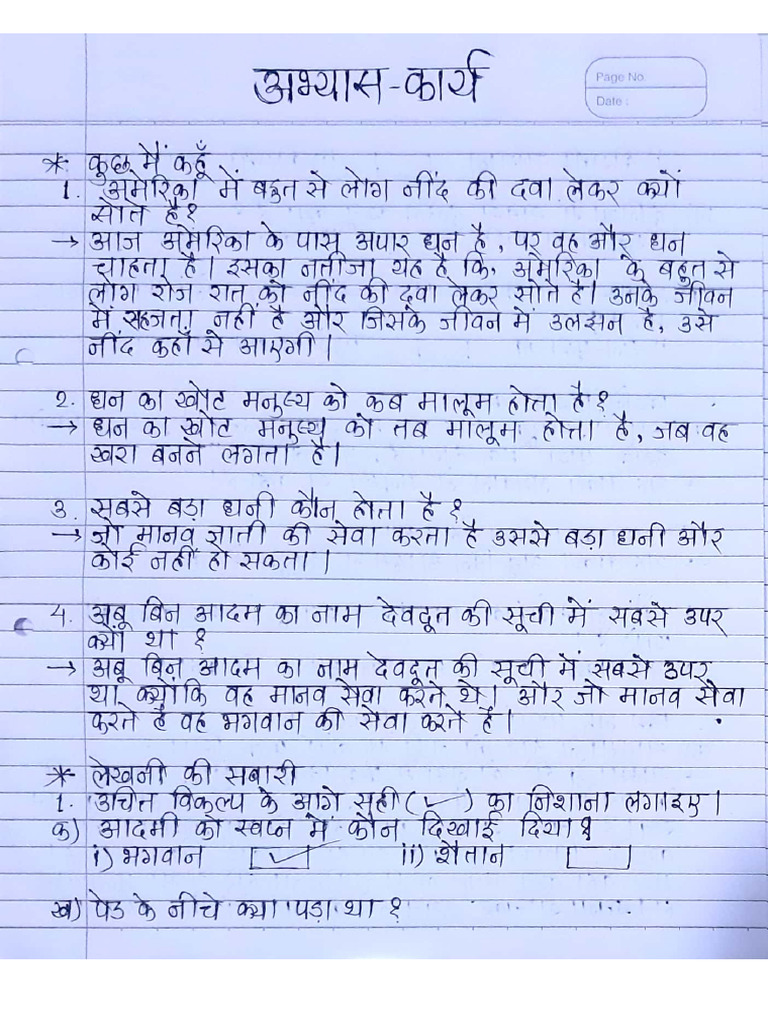 अभ्यास-कार्य
Page No.
Date :
* कुछ मैं कहूँ
1. अमेरिका में बहुत से लोग नींद की दवा लेकर क्यों
सोते है?
→ आज अमेरिका के पास अपार धन है, पर वह और धन
चाहता है। इसका नतीजा यह है कि, अमेरिका के बहुत से
लोग रोज रात को नींद की दवा लेकर सोते है। उनके जीवन
में सहजता नहीं है और जिसके जीवन में उलझन है, उसे
नींद कहाँ से आएगी।
2. धन का खोट मनुष्य को कब मालूम होता है?
→ धन का खोट मनुष्य को तब मालूम होता है, जब वह
खरा बनने लगता है।
3. सबसे बड़ा धनी कौन होता है?
→ जो मानव जाती की सेवा करता है उससे बड़ा धनी और
कोई नहीं हो सकता।
4. अबू बिन आदम का नाम देवदूत की सूची में सबसे उपर
क्यों था?
→ अबू बिन आदम का नाम देवदूत की सूची में सबसे उपर
था क्योंकि वह मानव सेवा करते थे। और जो मानव सेवा
करते है वह भगवान की सेवा करते है।
* लेखनी की सबारी
1. उचित विकल्प के आगे सही (✓) का निशाना लगाइए।
क) आदमी को स्वप्न में कौन दिखाई दिया?
i) भगवान ✓ ii) शैतान
ख) पेड के नीचे क्या पड़ा था?